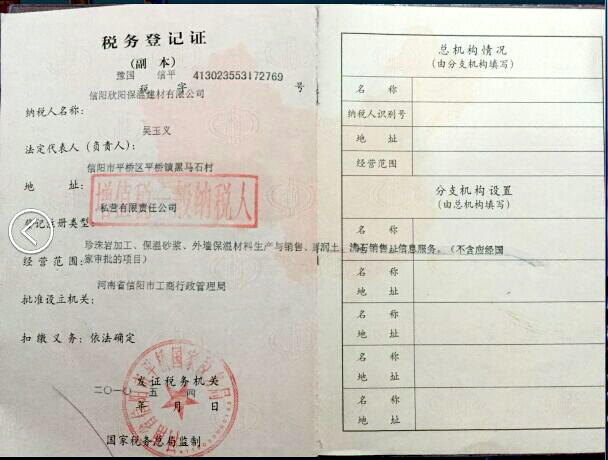 税务登记证
（副 本）
豫国 信平 413023553172769
税 字 号
信阳欣阳保温建材有限公司
纳税人名称：
吴玉义
法定代表人（负责人）：
信阳市平桥区平桥镇黑马石村
地 址：
增值税一般纳税人
私营有限责任公司
登记注册类型：
珍珠岩加工、保温砂浆、外墙保温材料生产与销售、膨润土、沸石销售、信息服务。（不含应经国
经营范围：家审批的项目）
河南省信阳市工商行政管理局
批准设立机关：
扣缴义务：依法确定
发证税务机关
二〇一〇 五 四
年 月 日
国家税务总局监制
总机构情况
（由分支机构填写）
名 称
纳税人识别号
地 址
经营范围
分支机构设置
（由总机构填写）
名 称
地 址
名 称
地 址
名 称
地 址
名 称
地 址
名 称
地 址